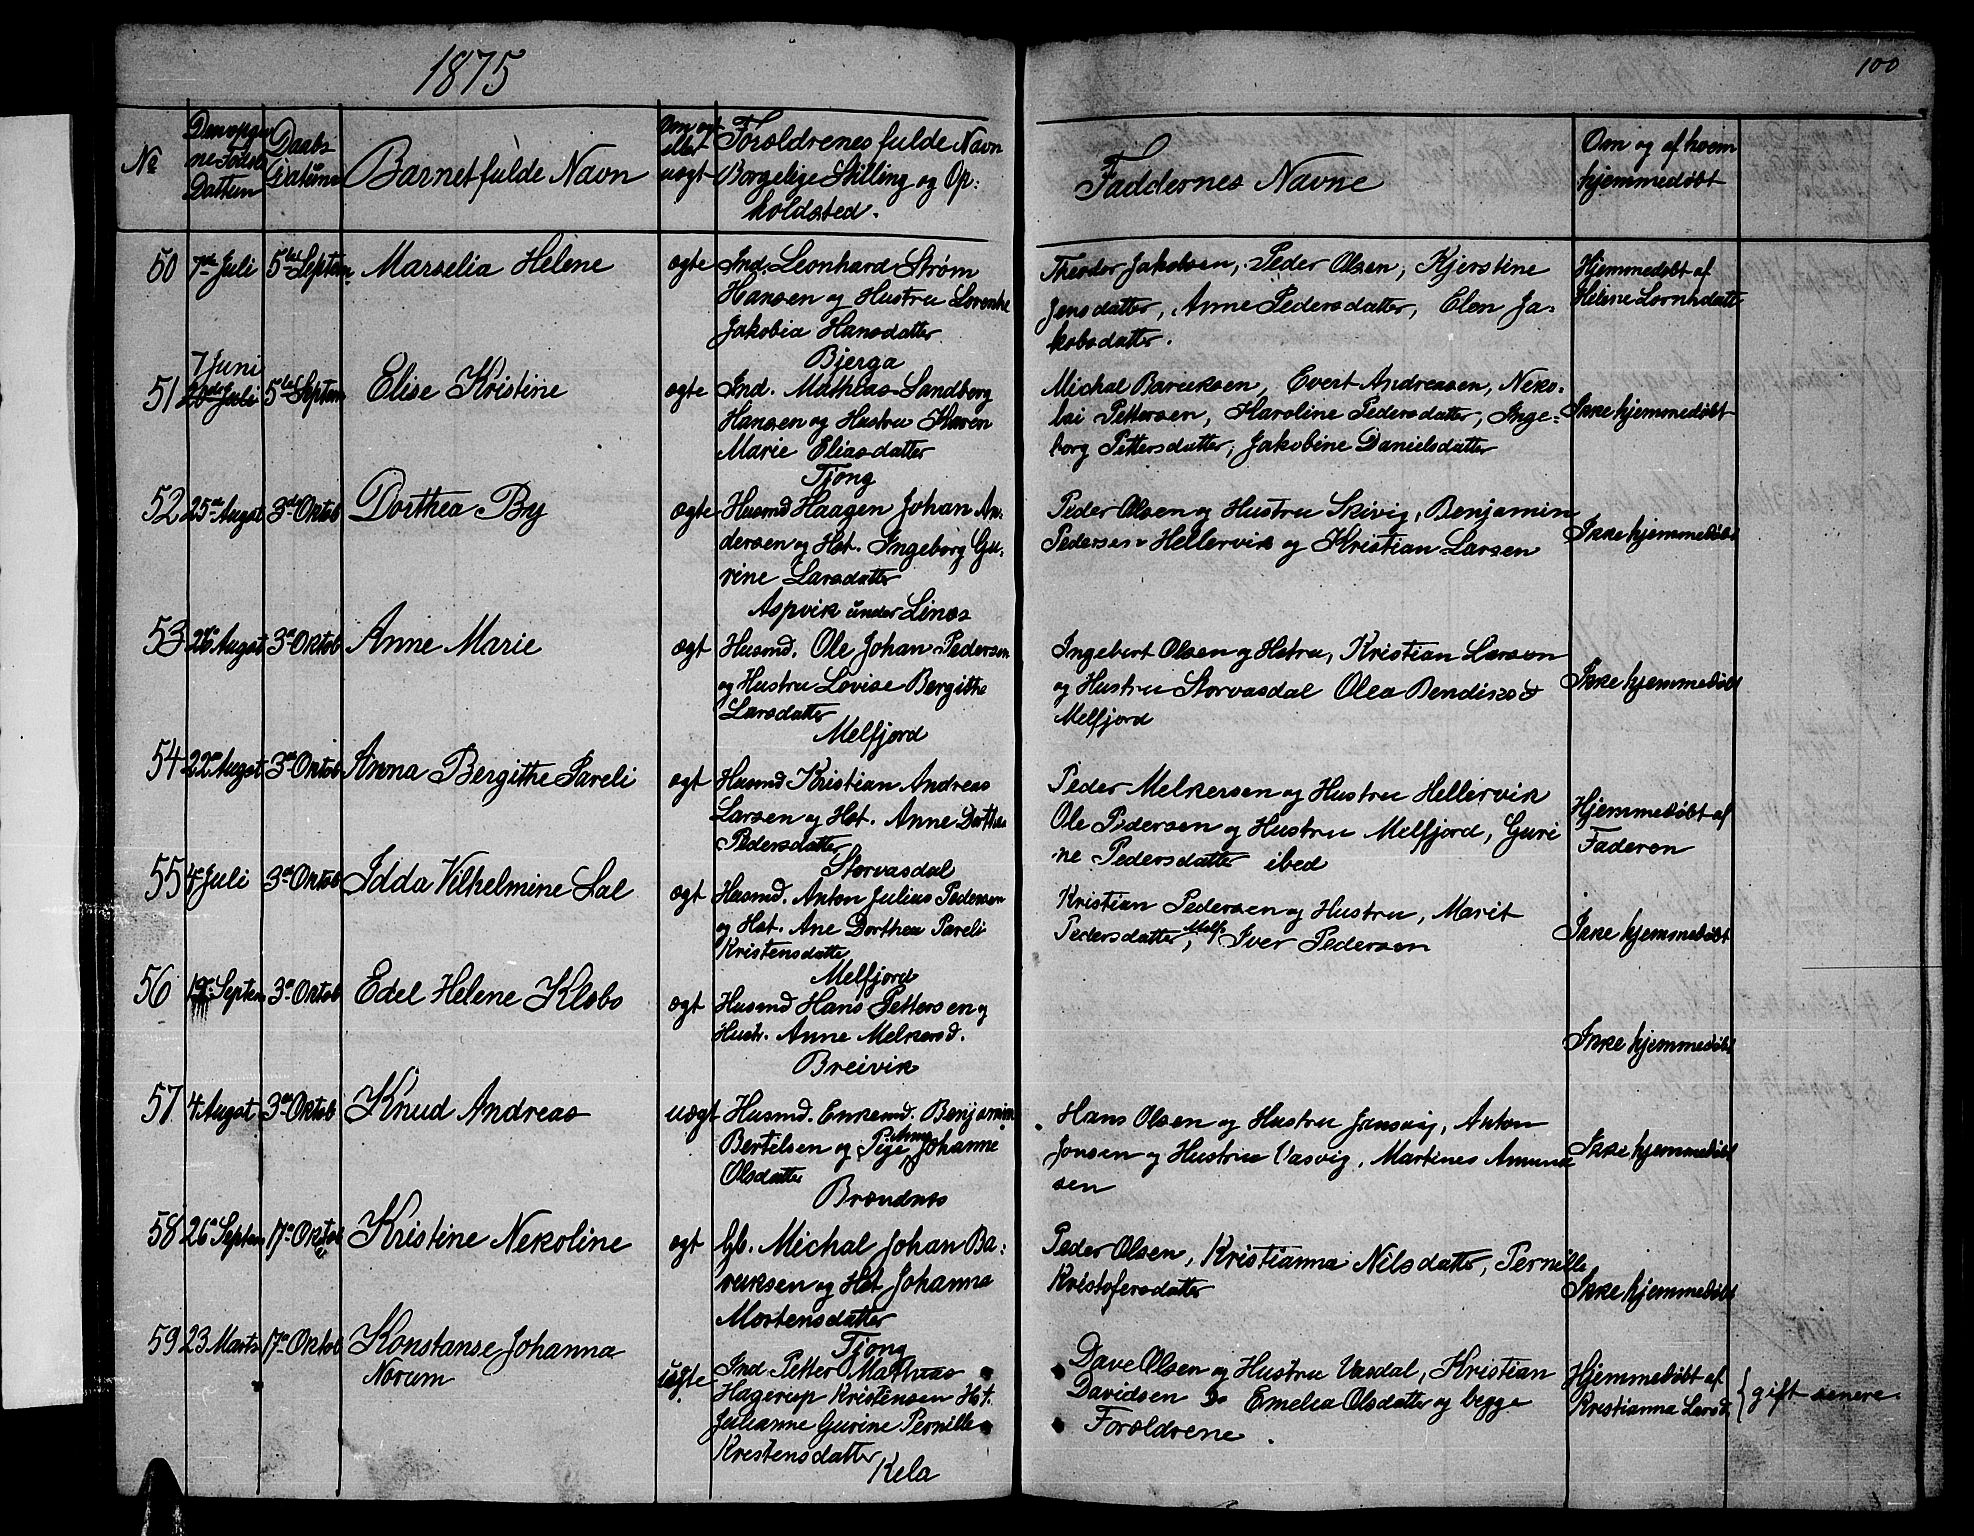 1875
100
No
Den opgiv
ne Føds.
Dattum
Daabs
Datum
Barnet fulde Navn
Om ægt
eller
uægt
Forældrenes fulde Navn
Borgelige Stilling og Op:
holdsted.
Faddernes Navne
Om og af hvem
hjemmedøbt
50 7de Juli 5te Septem Marselia Helene ægte Ind. Leonhard Strøm
Hansen og Hustru Lorentse
Jakobia Hansdatter
Bjerga
Theodor Jakobsen, Peder Olsen, Kjerstine
Jensdatter, Anne Pedersdatter, Elen Ja=
kobsdatter.
Hjemmedøbt af
Helene Lornhsdatt
7 Juni
51 Juli 5te Septem Elise Kristine ægte Ind. Mathias Sandberg
Hansen og Hustru Karen
Marie Eliasdatter
Tjong
Michal Baruksen, Evert Andreasen, Neko=
lai Pettersen, Haroline Pedersdatter, Inge=
borg Pettersdatter, Jakobine Danielsdatter
Ikke hjemmedøbt
52 25de Augst 3de Oktob Dorthea By ægte Husmd Haagen Johan An=
dersen og Hst. Ingeborg Gu=
rine Larsdatter
Aspvik under Linæs
Peder Olsen og Hustru Skivig, Benjamin
Pedersen Hellervik og Kristian Larsen
Ikke hjemmedøbt
53 26 Augst 3de Oktob Anne Marie ægt Husmd. Ole Johan Pedersen
og Hustru Lovise Bergithe
Larsdatter
Melfjord
Ingebert Olsen og Hstru, Kristian Larsen
og Hustru Storvasdal Olea Bendiksd
Melfjord
Ikke hjemmedøbt
54 22de Augst 3de Oktob Anna Bergithe Pareli ægt Husmd Kristian Andreas
Larsen og Hst. Anne Dorthea
Pedersdatter
Storvasdal
Peder Melkersen og Hustru Hellervik
Ole Pedersen og Hustru Melfjord, Guri
ne Pedersdatter ibed
Hjemmedøbt af
Faderen
55 4 Juli 3de Oktob Idda Vilhelmine Lal ægt Husmd. Anton Julius Pedersen
og Hst. Ane Dorthea Pareli
Kristensdatter
Melfjord
Kristian Pedersen og Hustru, Marit
Pedersdatter, Melf. Iver Pedersen
Ikke hjemmedøbt
56 Septem 3de Oktob Edel Helene Klæbo ægt Husmd Hans Pettersen og
Hustr. Anne Melkersd.
Breivik
Ikke hjemmedøbt
57 4 Augst 3de Oktob Knud Andreas uægt Husmd. Enkemd. Benjamin
Bertelsen og Pige Anna Johanne
Olsdatter
Brændnes
Hans Olsen og Hustru Jansvig, Anton
Jonsen og Hustru Vasvig, Martines Amund
sen
Ikke hjemmedøbt
58 26de Septem 17de Oktob Kristine Nekoline ægt Gb. Michal Johan Ba=
ruksen og Hst Johanna
Mortensdatter
Tjong
Peder Olsen, Kristianna Nilsdatter, Pernille
Kristofersdatter
Ikke hjemmedøbt
59 23 Marts 17de Oktob Konstanse Johanna
Norum
uægte Ind. Petter Mathias
Hagerup Kristensen Hst.
Julianne Gurine Pernille
Kristensdatter
Kela
Dave Olsen og Hustru Vasdal, Kristian
Davidsen Do Emelia Olsdatter og begge
Forældrene.
Hjemmedøbt af
Kristianna Larsd.
gift senere.